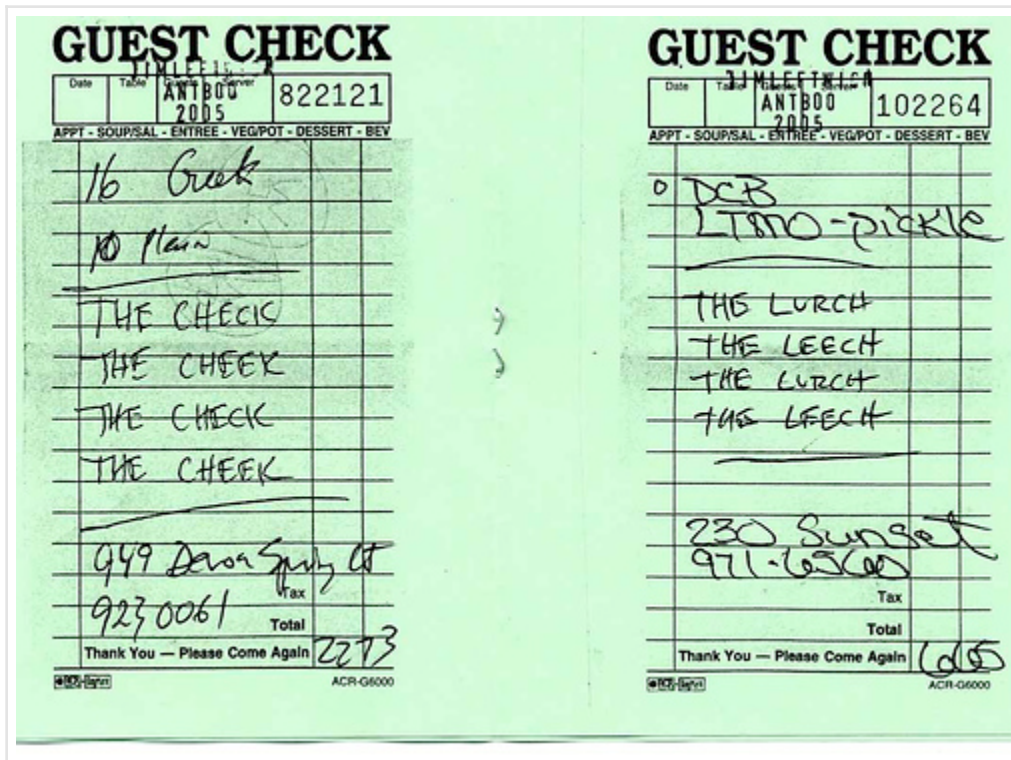 GUEST CHECK
Date Table Guests Server
ANTBOO
2005
822121
APPT - SOUP/SAL - ENTREE - VEG/POT - DESSERT - BEV
16 Greek
10 Plain
THE CHECK
THE CHEEK
THE CHECK
THE CHEEK
949 Devon Spring Ct
Tax
923 0061
Total
Thank You — Please Come Again 2273
ACR-G6000
GUEST CHECK
JIMLEFTWICH
Date Table Guests Server
ANTBOO
2005
102264
APPT - SOUP/SAL - ENTREE - VEG/POT - DESSERT - BEV
DCB
LTMO-pickle
THE LURCH
THE LEECH
THE LURCH
THE LEECH
230 Sunset
971-6560
Tax
Total
Thank You — Please Come Again
ACR-G6000